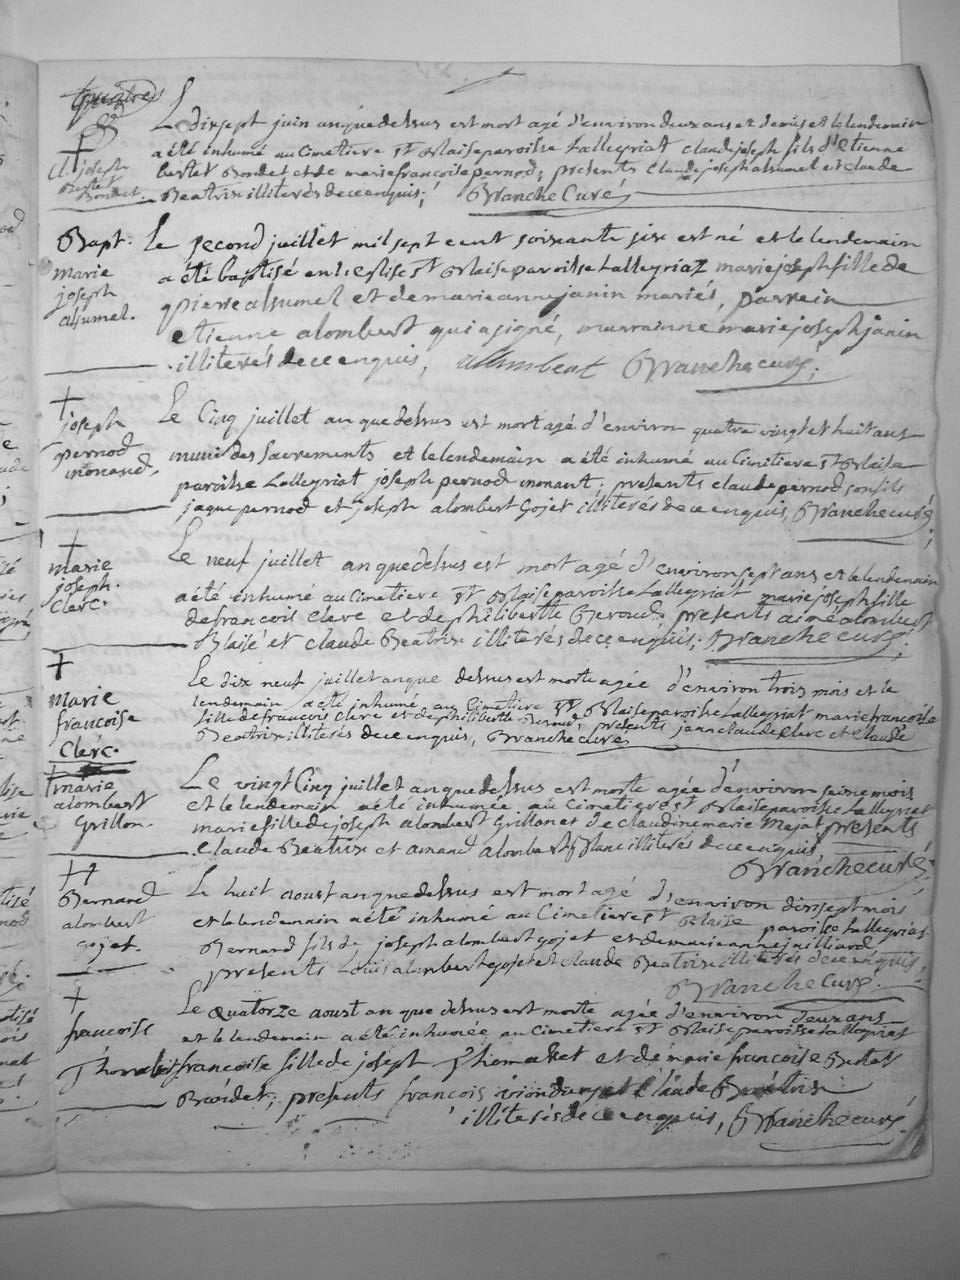 †
Cl. joseph
Bertet
Bondet.
Le dixsept juin an que dessus est mort agé d'environ deux ans et demis et le lendemain
a été inhumé au Cimetiere St Blaise paroisse Lalleyriat Claude joseph fils d'Etienne
Bertet Bondet et de marie francoise pernod; presents Claude joseph alhumel et claude
Beatrix illiterés de ce enquis; Branche Curé
Bapt.
marie
joseph
alhumel.
Le second juillet mil sept cent soixante six est né et le lendemain
a été baptisé en l'eglise St Blaise paroisse Lalleyriaz marie joseph fille de
pierre alhumel et de marie anne janin mariés, parrein
etienne alombert qui a signé, marrainne marie joseph janin
illiterés de ce enquis, allombert Branche curé;
†
joseph
pernod
monand.
Le Cinq juillet an que dessus est mort agé d'environ quatre vingt et huit ans
muni des Sacrements et le lendemain a été inhumé au Cimitiere St Blaise
paroisse Lalleyriat joseph pernod monant; presents claude pernod son fils
jaque pernod et joseph alombert Gojet illiterés de ce enquis, Branche curé;
†
marie
joseph.
Clerc.
Le neuf juillet an que dessus est mort agé d'environ sept ans et le lendemain
a été inhumé au Cimetiere St Blaise paroisse Lalleyriat marie joseph fille
de francois Clerc et de philibertte Beroud; presents aimé alombert
Blaisé et claude Beatrix illiterés de ce enquis; Branche curé;
†
Marie
francoise
Clerc.
Le dix neuf juillet an que dessus est morte agée d'environ trois mois et le
lendemain a été inhumé au Cimetiere St Blaise paroisse Lalleyriat marie francoise
fille de francois Clerc et de philibertte Beroud; presents jean claude Clerc et Claude
Beatrix illiterés de ce enquis, Branche curé
†
marie
alombert
Grillon.
Le vingt Cinq juillet an que dessus est morte agée d'environ seize mois
et le lendemain a été inhumée au Cimetiere St Blaise paroisse Lalleyriat
marie fille de joseph alombert Grillon et de claudine marie Mejat presents
Claude Beatrix et amand alombert Blanc illiterés de ce enquis
Branche curé
††
Bernard
alombert
gojet.
Le huit aoust an que dessus est mort agé d'environ dixsept mois
et le lendemain a été inhumé au Cimetiere St Blaise paroisse Lalleyriat
Bernard fils de joseph alombert gojet et de marie anne juilliard
presents Louis alombert gojet et claude Beatrix illiterés de ce enquis,
Branche Curé.
†
francoise
Thomasset
Le Quatorze aoust an que dessus est morte agée d'environ deux ans
et le lendemain a été inhumée au Cimetiere St Blaise paroisse Lalleyriat
francoise fille de joseph Thomasset et de marie francoise Bertet
Bondet; presents francois et Claude Beatrix
illiterés de ce enquis, Branche curé.